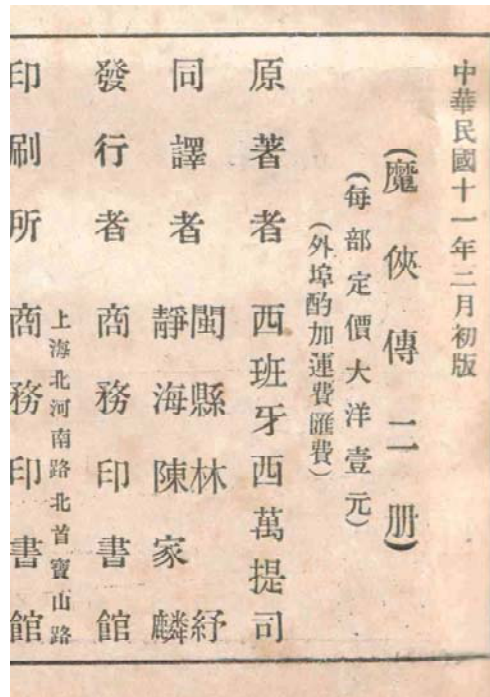 中華民國十一年二月初版
(魔俠傳二册)
(每部定價大洋壹元)
(外埠酌加運費匯費)
原著者 西班牙西萬提司
同譯者 閩縣林紓
靜海陳家麟
發行者 商務印書館
上海北河南路北首寶山路
印刷所 商務印書館